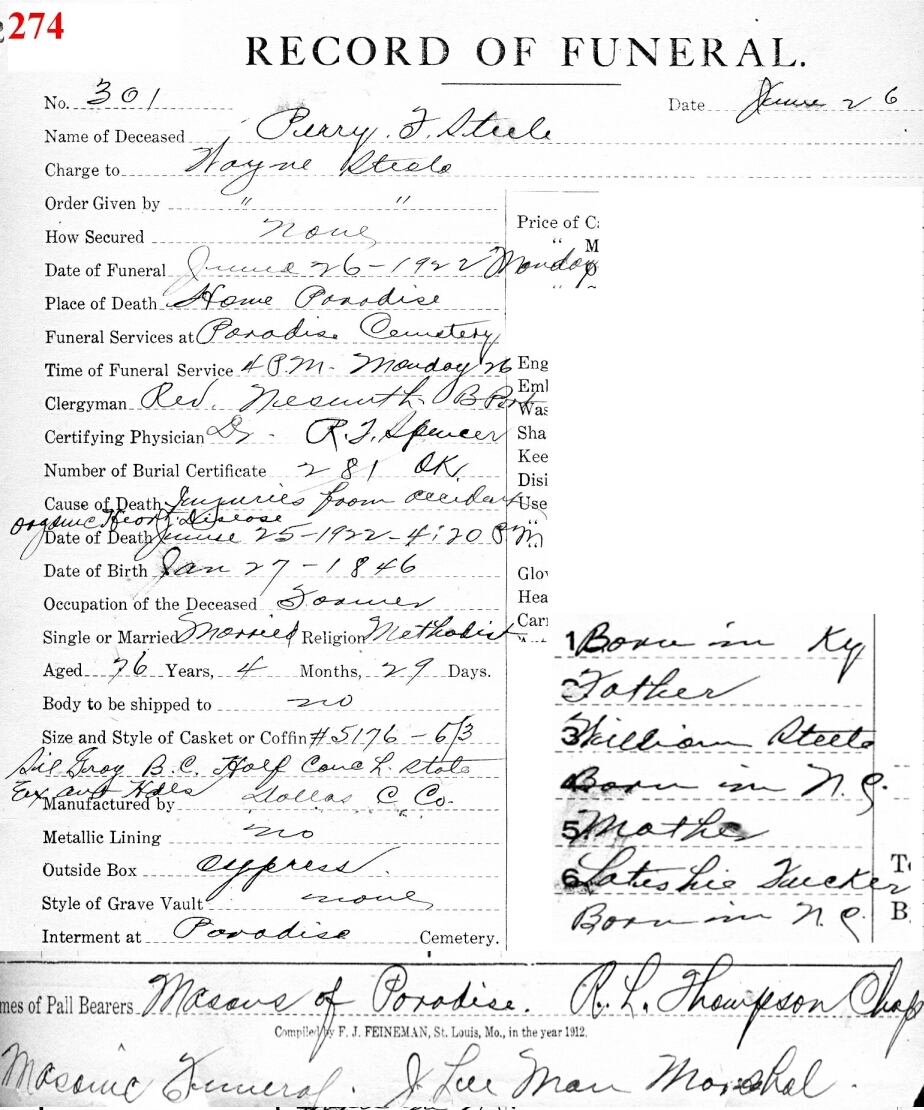 274
RECORD OF FUNERAL.
No. 301 Date June 26
Name of Deceased Perry. F. Steele
Charge to Wayne Steele
Order Given by " "
How Secured none
Date of Funeral June 26-1922 Monday
Place of Death Home Paradise
Funeral Services at Paradise Cemetery
Time of Funeral Service 4 P.M. Monday 26
Clergyman Rev. Nesmith B
Certifying Physician Dr. R.F. Spencer
Number of Burial Certificate 281 OK.
Cause of Death Injuries from accident
organic Heart Disease
Date of Death June 25-1922-4:20 P.M.
Date of Birth Jan 27-1846
Occupation of the Deceased Farmer
Single or Married Married Religion Methodist
Aged 76 Years, 4 Months, 29 Days.
Body to be shipped to no
Size and Style of Casket or Coffin #5176 - 6/3
Sil Gray B.C. Half Couch state
Ex Hdls
Manufactured by Dallas C Co.
Metallic Lining no
Outside Box Cypress
Style of Grave Vault none
Interment at Paradise Cemetery.
Price of Ca
" M
" "
Eng
Emb
Was
Sha
Kee
Disi
Use
"
Glov
Hea
Carr
1 Born in Ky
2 Father
3 William Steele
4 Born in N.C.
5 Mother
6 Tucker
Born in N.C.
To
B
mes of Pall Bearers Masons of Paradise. R. L. Thompson Chap
Compiled by F. J. FEINEMAN, St. Louis, Mo., in the year 1912.
Masonic Funeral. J Lee Man Marshal.